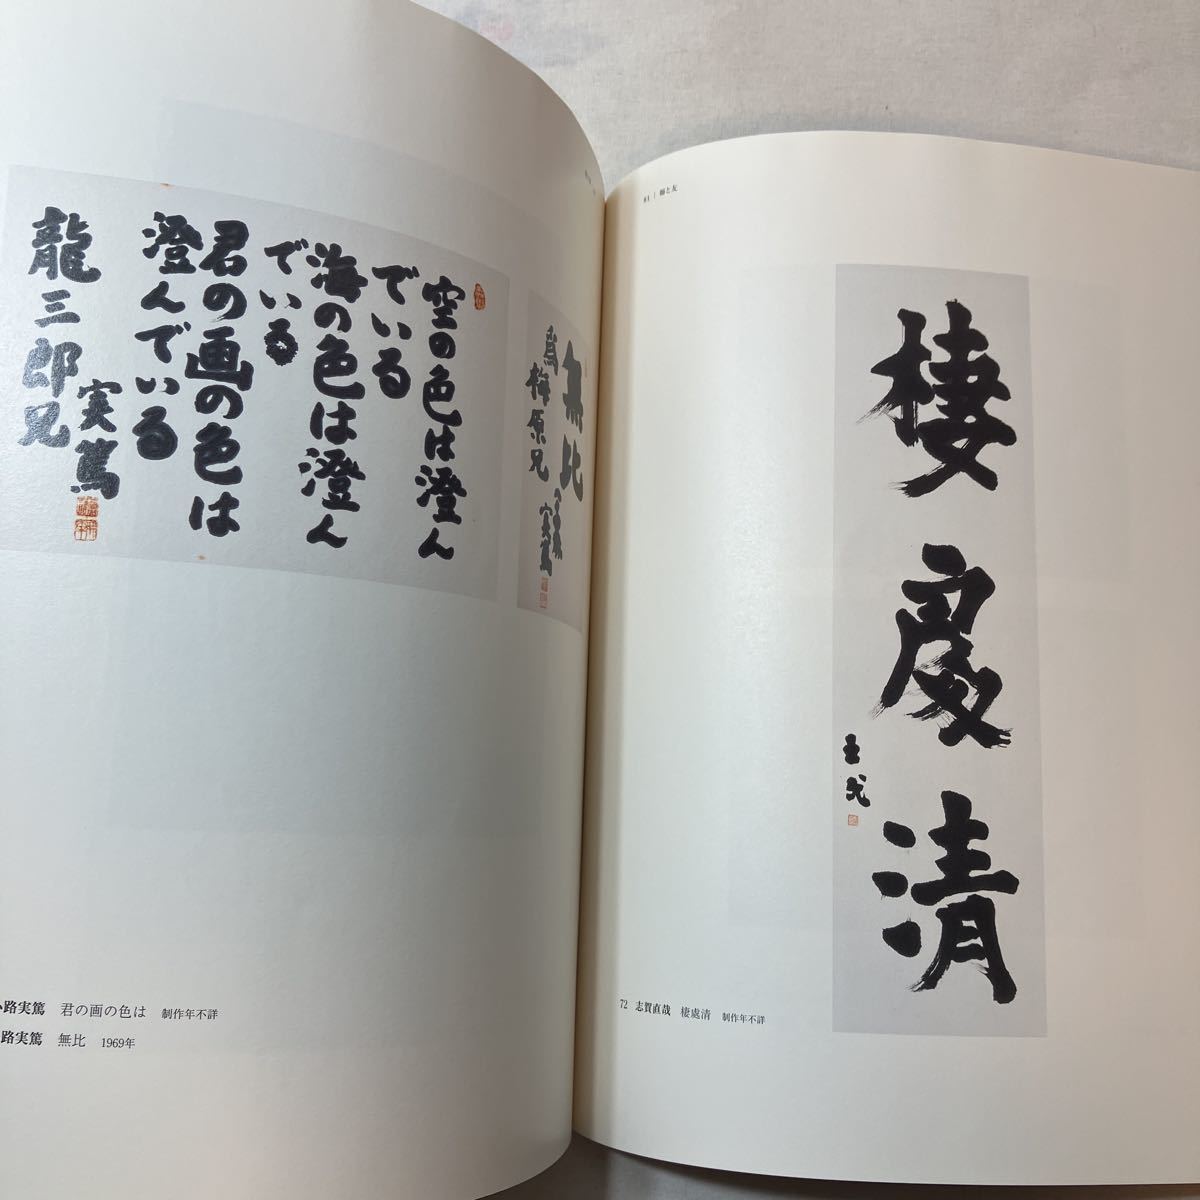 空の色は澄ん
でいる
海の色は澄ん
でいる
君の画の色は
澄んでいる
実篤
龍三郎兄
無比
為梅原兄
実篤
路実篤 君の画の色は 制作年不詳
路実篤 無比 1969年
81 | 師と友
棲處清
直哉
72 志賀直哉 棲處清 制作年不詳